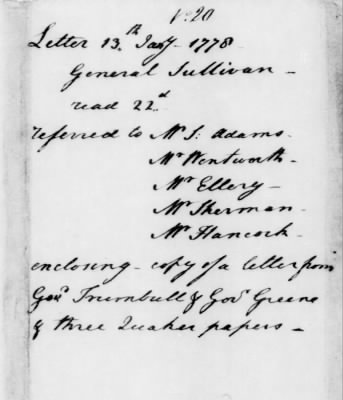 No. 20
Letter 13.th Jany 1778
General Sullivan -
read 22.d
referred to Mr S: Adams.
Mr Wentworth -
Mr Ellery -
Mr Sherman -
Mr Hancock -
enclosing - copy of a letter from
Govr Trumbull & Govr Greene
& three Quaker papers -